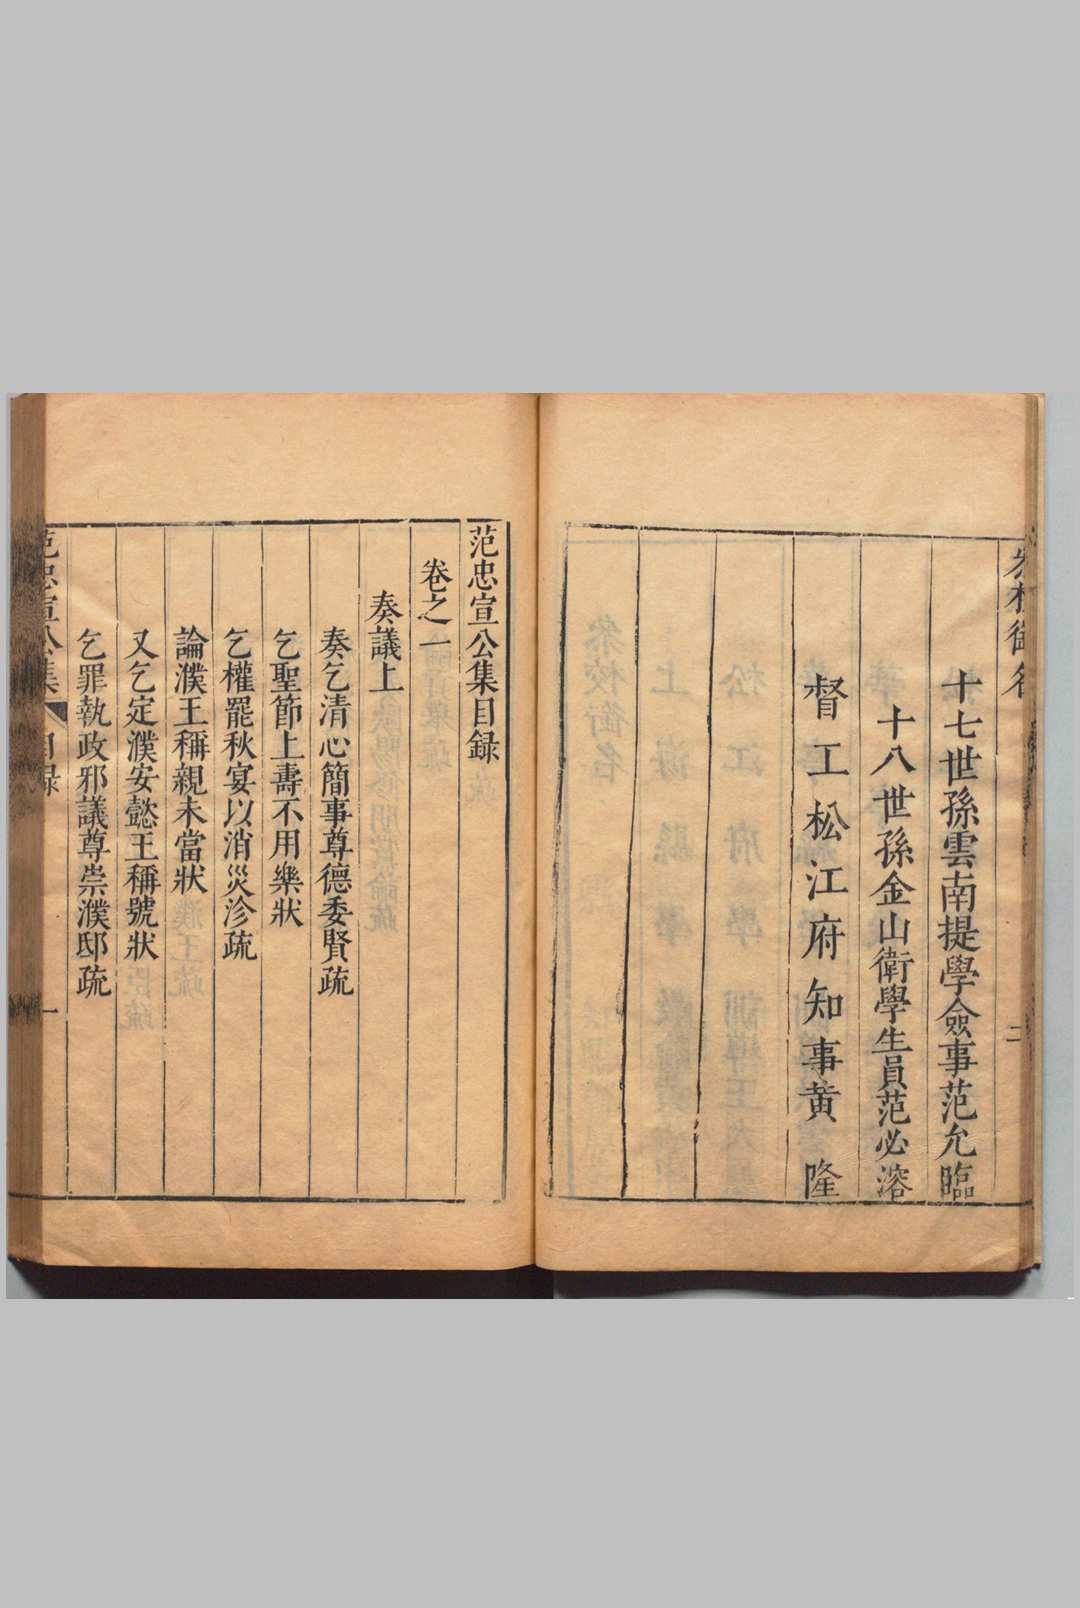 參校銜名
二
十七世孫雲南提學僉事范允臨
十八世孫金山衛學生員范必溶
督工松江府知事黄隆
范忠宣公集目録
卷之一
奏議上
奏乞清心簡事尊德委賢疏
乞聖節上壽不用樂狀
乞權罷秋宴以消災沴疏
論濮王稱親未當狀
又乞定濮安懿王稱號狀
乞罪執政邪議尊崇濮邸疏
范忠宣公集
目録
一